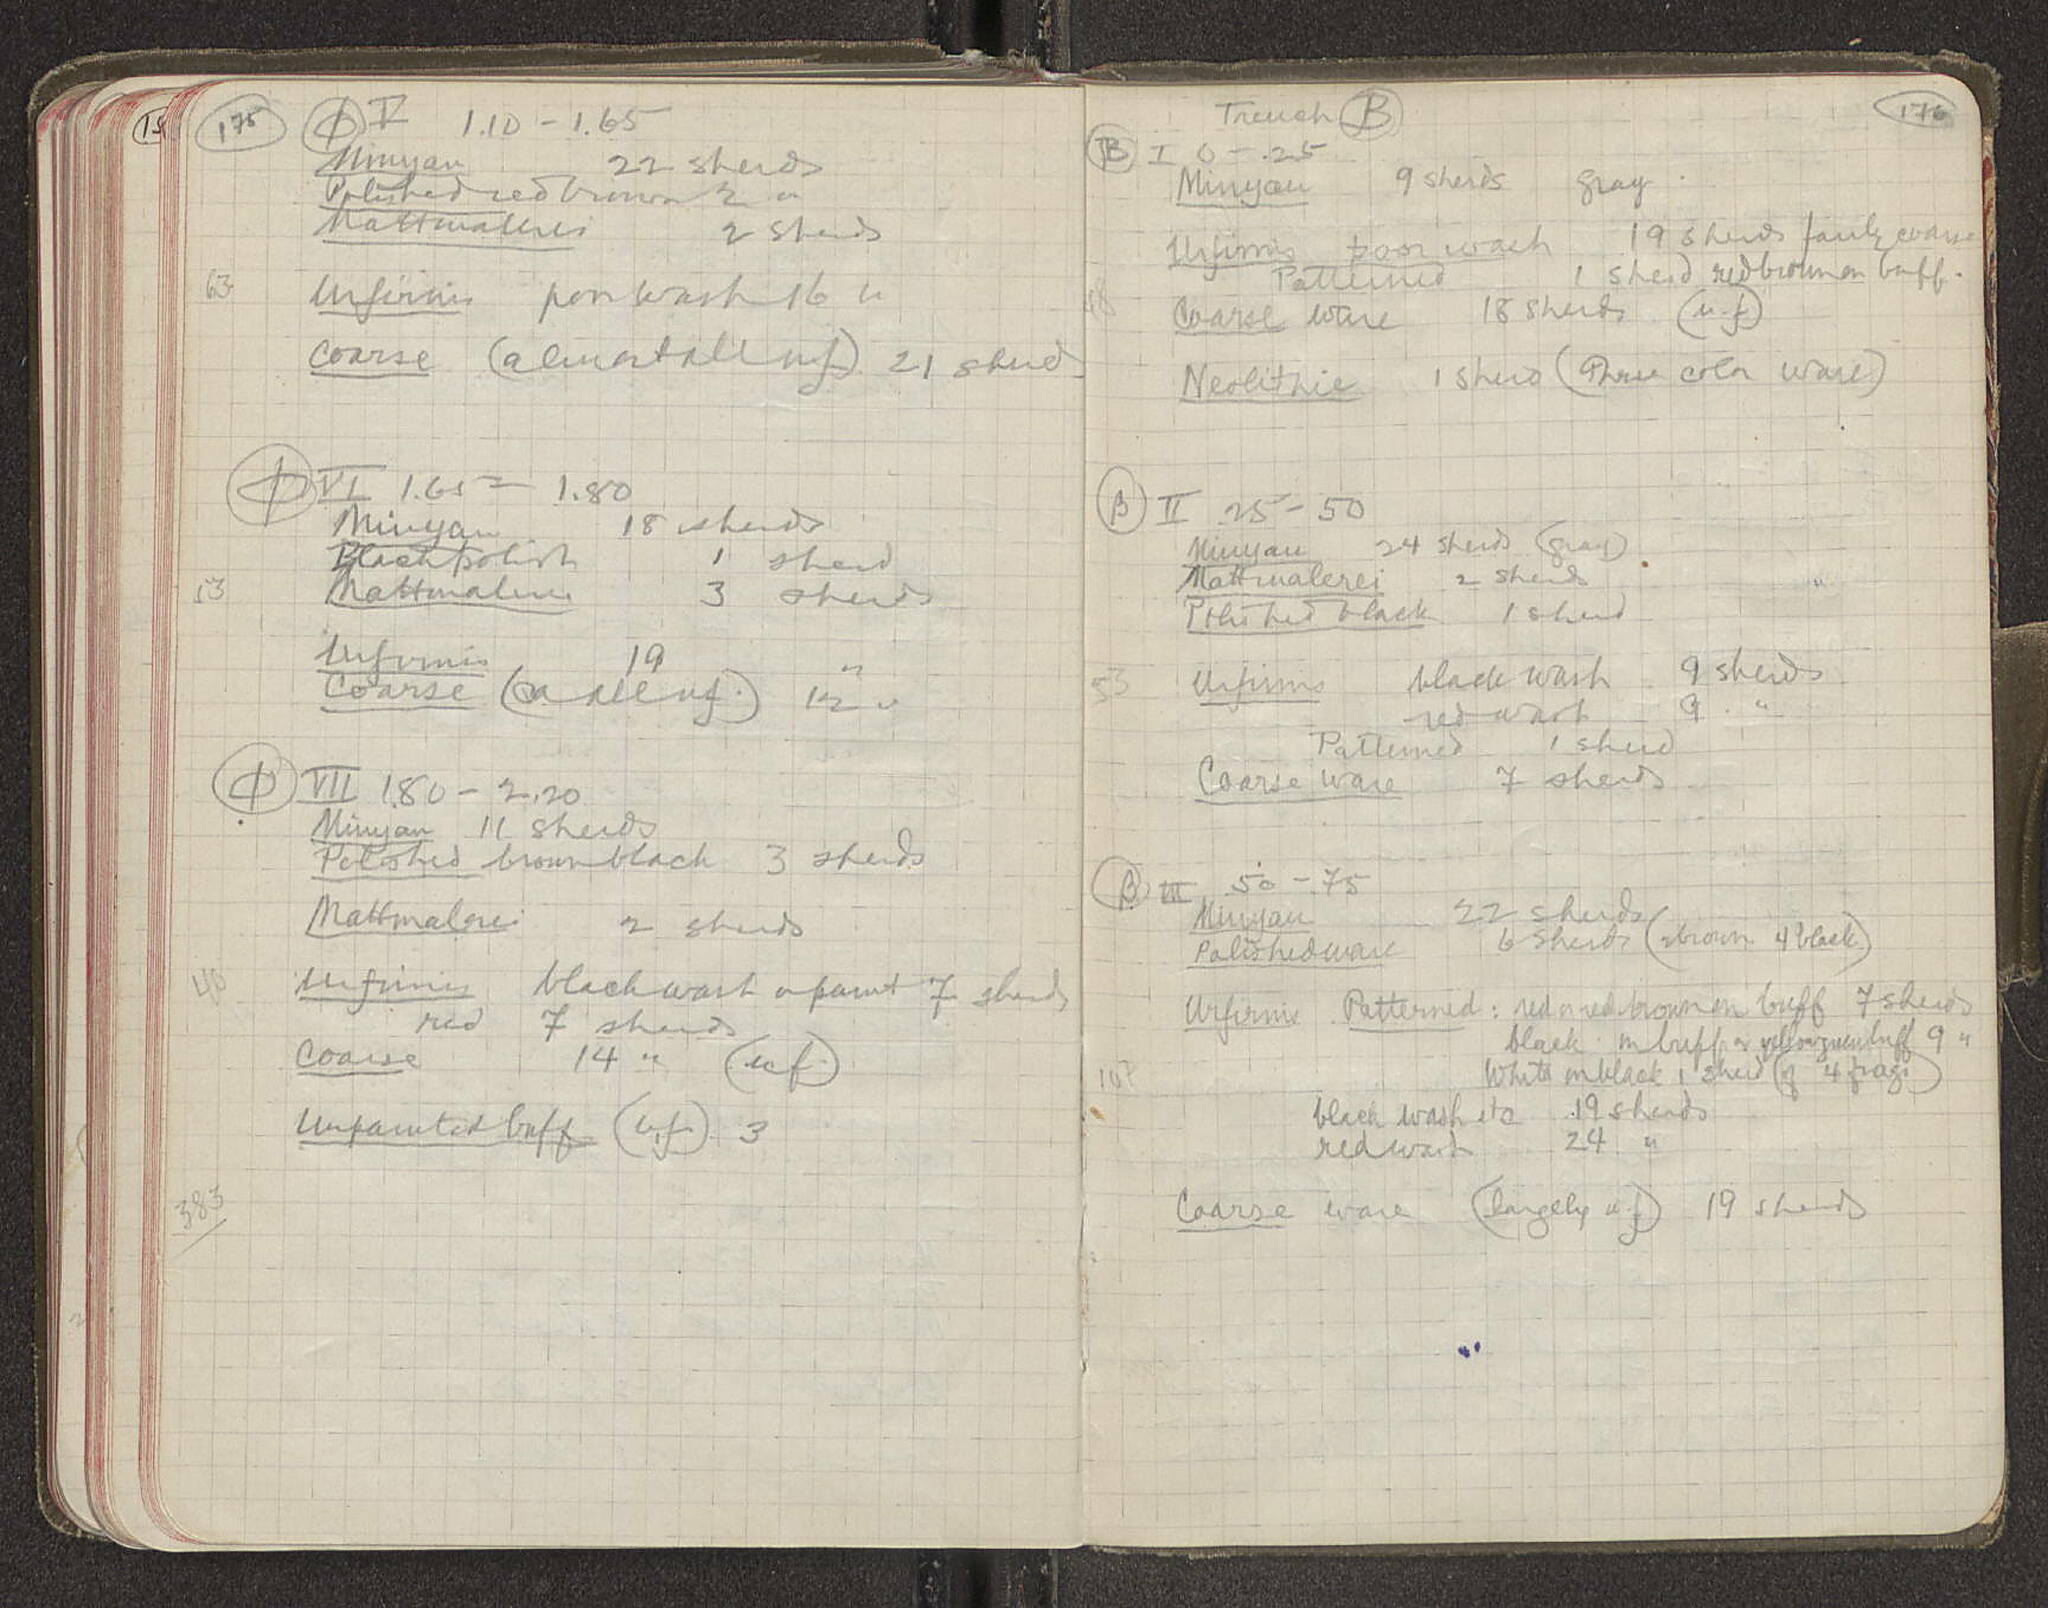 15
175
Φ V 1.10 - 1.65
Minyan 22 sherds
Polished red brown 2 "
Mattmalerei 2 sherds
63
Urfirnis poor wash 16 "
Coarse (almost all uf) 21 sherd
Φ VI 1.65 - 1.80
Minyan 18 sherds
Black polish 1 sherd
53
Mattmalerei 3 sherds
Urfirnis 19 "
Coarse (all uf.) 12 "
Φ VII 1.80 - 2.20
Minyan 11 sherds
Polished brown black 3 sherds
Mattmalerei 2 sherds
40
Urfirnis black wash or paint 7 sherds
red 7 sherds
Coarse 14 " (uf.)
Unpainted buff (uf.) 3
383
Trench B
176
B I 0 - .25
Minyan 9 sherds gray
Urfirnis poor wash 19 sherds fairly coarse
Patterned 1 sherd red brown on buff.
48
Coarse ware 18 sherds (u.f)
Neolithic 1 sherd (three color ware)
B II .25 - 50
Minyan 24 sherds (gray)
Mattmalerei 2 sherds "
Polished black 1 sherd
53
Urfirnis black wash 9 sherds
red wash 9 "
Patterned 1 sherd
Coarse ware 7 sherds
B III .50 - .75
Minyan 22 sherds
Polished ware 6 sherds (2 brown 4 black)
Urfirnis Patterned: red or red brown on buff 7 sherds
black on buff or yellow green buff 9 "
White on black 1 sherd (of 4 frags)
107
black wash etc 19 sherds
red wash 24 "
Coarse ware (largely u.f) 19 sherds